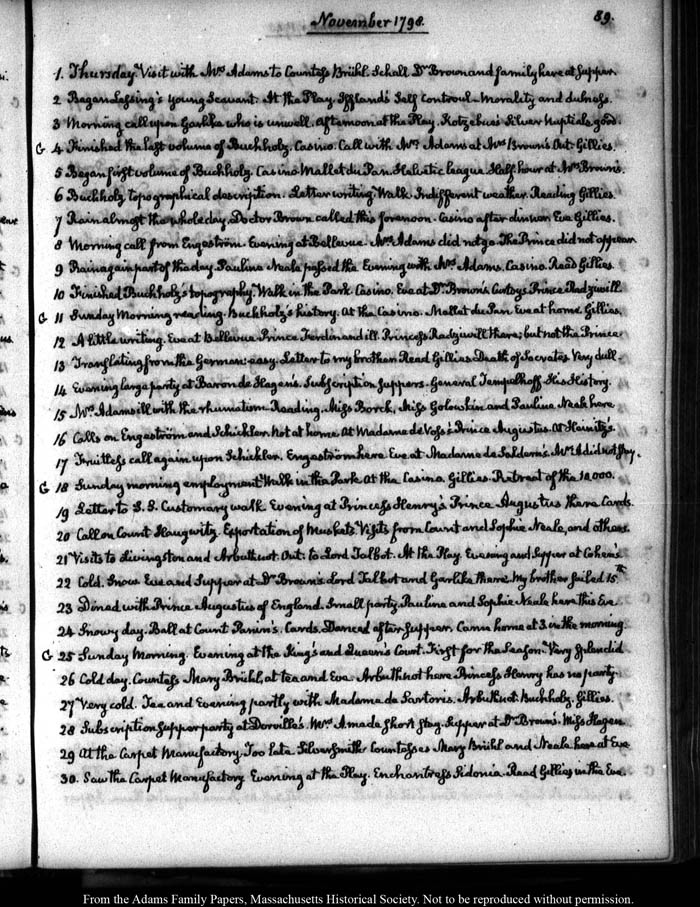 November 1798.
89.
1. Thursday. Visit with Mrs Adams to Countess Brühl. Schall Dr Brown and family here at Supper.
2 Began Lessing's young Scavant. At the Play. Iffland's Self Controul - Morality and dulness.
3 Morning call upon Garlike who is unwell. Afternoon at the Play. Kotzebue's Silver Nuptials, good.
G 4 Finished the last volume of Buchholz. Casino. Call with Mrs Adams at Mrs Brown's. Out. Gillies.
5 Began first volume of Buchholz. Casino Mallet du Pan. Helvetic league. Half hour at Mrs Brown's.
6 Buchholz topographical description. Letter writing. Walk. Indifferent weather. Reading Gillies.
7 Rain almost the whole day. Doctor Brown called this forenoon. Casino after dinner. Eve Gillies.
8 Morning call from Engeström. Evening at Bellevue. Mrs Adams did not go. The Prince did not appear
9 Rain again part of the day. Pauline Neale passed the Evening with Mrs Adams. Casino. Read Gillies.
10 Finished Buchholz's topography. Walk in the Park. Casino. Eve at Dr Brown's. Prince Radziwill.
G 11 Sunday Morning reading. Buchholz's history. At the Casino. Mallet du Pan. Eve at home. Gillies.
12 A little writing. Eve at Bellevue. Prince Ferdinand ill. Princess Radziwill there; but not the Prince
13 Translating from the German: easy. Letter to my brother. Read Gillies. Death of Socrates. Very dull.
14 Evening large party at Baron de Hagen's. Subscription Suppers. General Tempelhoff. His History.
15 Mrs Adams ill with the rhumatism. Reading. Miss Borck, Miss Golowkin and Pauline Neale here
16 Calls on Engeström and Schickler. Not at home. At Madame de Voss's Prince Augustus. At Heinitz's
17 Fruitless call again upon Schickler. Engeström here. Eve at Madame de Saldern's. Mrs A did not stay.
G 18 Sunday morning employment. Walk in the Park. At the Casino. Gillies. Retreat of the 10.000.
19 Letter to S.S. Customary walk. Evening at Princess Henry's. Prince Augustus there. Cards.
20 Call on Count Haugwitz. Exportation of Muskets. Visits from Count and Sophie Neale, and others.
21 Visits to Livingston and Arbuthnot. Out. to Lord Talbot. At the Play. Evening and Supper at Cohen's
22 Cold. Snow. Eve and Supper at Dr Brown's. Lord Talbot and Garlike there. My brother sailed 15th
23 Dined with Prince Augustus of England. Small party. Pauline and Sophie Neale here this Eve.
24 Snowy day. Ball at Count Panin's. Cards. Danced after Supper. Came home at 3 in the morning.
G 25 Sunday Morning. Evening at the King's and Queen's Court. First for the Season. Very splendid
26 Cold day. Countess Mary Brühl, at tea and Eve. Arbuthnot here. Princess Henry has no party.
27 Very cold. Tea and Evening partly with Madame de Sartoris. Arbuthnot. Buchholz. Gillies.
28 Subscription Supper party at Dorville's. Mrs A made short stay. Supper at Dr Brown's. Miss Hagen
29 At the Carpet Manufactory. Too late. Silversmith. Countesses Mary Brühl and Neale here at Eve
30. Saw the Carpet Manufactory. Evening at the Play. Enchantress Sidonia. Read Gillies in the Eve.
From the Adams Family Papers, Massachusetts Historical Society. Not to be reproduced without permission.